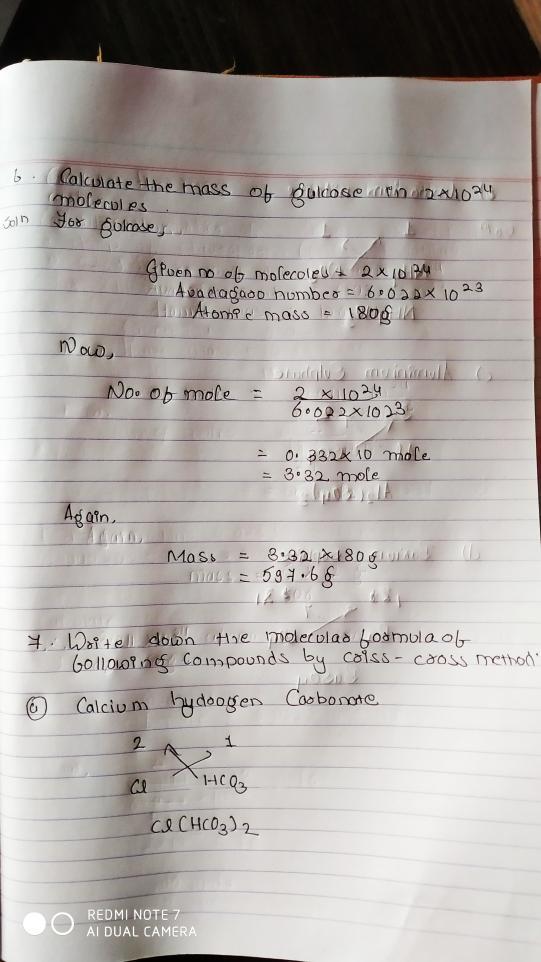 6. Calculate the mass of gulcose in 2×10²⁴
molecules.
Soln For gulcose,
Given no of molecules = 2 × 10²⁴
Avadagaro number = 6.022 × 10²³
Atomic mass = 180g
Now,
No. of mole = 2 × 10²⁴
6.022×10²³
= 0.332×10 mole
= 3.32 mole
Again,
Mass = 3.32 ×180g
= 597.6g
7. Write down the molecular formula of
following compounds by criss-cross method.
a Calcium hydrogen Carbonate
2 1
Ca HCO₃
Ca(HCO₃)₂
REDMI NOTE 7
AI DUAL CAMERA